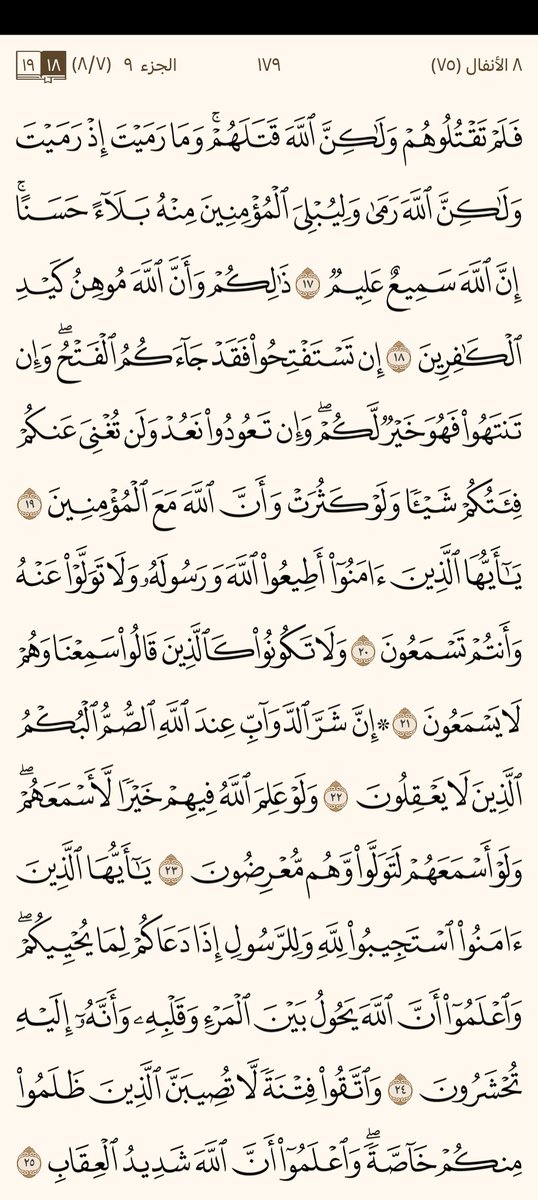 ٨ الأنفال (٧٥) ١٧٩ الجزء ٩ (٨/٧) ١٨ ١٩
فَلَمْ تَقْتُلُوهُمْ وَلَٰكِنَّ ٱللَّهَ قَتَلَهُمْۚ وَمَا رَمَيْتَ إِذْ رَمَيْتَ
وَلَٰكِنَّ ٱللَّهَ رَمَىٰ وَلِيُبْلِيَ ٱلْمُؤْمِنِينَ مِنْهُ بَلَآءً حَسَنًاۚ
إِنَّ ٱللَّهَ سَمِيعٌ عَلِيمٌ ١٧ ذَٰلِكُمْ وَأَنَّ ٱللَّهَ مُوهِنُ كَيْدِ
ٱلْكَٰفِرِينَ ١٨ إِن تَسْتَفْتِحُوا۟ فَقَدْ جَآءَكُمُ ٱلْفَتْحُۖ وَإِن
تَنتَهُوا۟ فَهُوَ خَيْرٌ لَّكُمْۖ وَإِن تَعُودُوا۟ نَعُدْ وَلَن تُغْنِيَ عَنكُمْ
فِئَتُكُمْ شَيْـًٔا وَلَوْ كَثُرَتْ وَأَنَّ ٱللَّهَ مَعَ ٱلْمُؤْمِنِينَ ١٩
يَٰٓأَيُّهَا ٱلَّذِينَ ءَامَنُوٓا۟ أَطِيعُوا۟ ٱللَّهَ وَرَسُولَهُۥ وَلَا تَوَلَّوْا۟ عَنْهُ
وَأَنتُمْ تَسْمَعُونَ ٢٠ وَلَا تَكُونُوا۟ كَٱلَّذِينَ قَالُوا۟ سَمِعْنَا وَهُمْ
لَا يَسْمَعُونَ ٢١ ۞ إِنَّ شَرَّ ٱلدَّوَآبِّ عِندَ ٱللَّهِ ٱلصُّمُّ ٱلْبُكْمُ
ٱلَّذِينَ لَا يَعْقِلُونَ ٢٢ وَلَوْ عَلِمَ ٱللَّهُ فِيهِمْ خَيْرًا لَّأَسْمَعَهُمْۖ
وَلَوْ أَسْمَعَهُمْ لَتَوَلَّوا۟ وَّهُم مُّعْرِضُونَ ٢٣ يَٰٓأَيُّهَا ٱلَّذِينَ
ءَامَنُوا۟ ٱسْتَجِيبُوا۟ لِلَّهِ وَلِلرَّسُولِ إِذَا دَعَاكُمْ لِمَا يُحْيِيكُمْۖ
وَٱعْلَمُوٓا۟ أَنَّ ٱللَّهَ يَحُولُ بَيْنَ ٱلْمَرْءِ وَقَلْبِهِۦ وَأَنَّهُۥٓ إِلَيْهِ
تُحْشَرُونَ ٢٤ وَٱتَّقُوا۟ فِتْنَةً لَّا تُصِيبَنَّ ٱلَّذِينَ ظَلَمُوا۟
مِنكُمْ خَآصَّةًۖ وَٱعْلَمُوٓا۟ أَنَّ ٱللَّهَ شَدِيدُ ٱلْعِقَابِ ٢٥